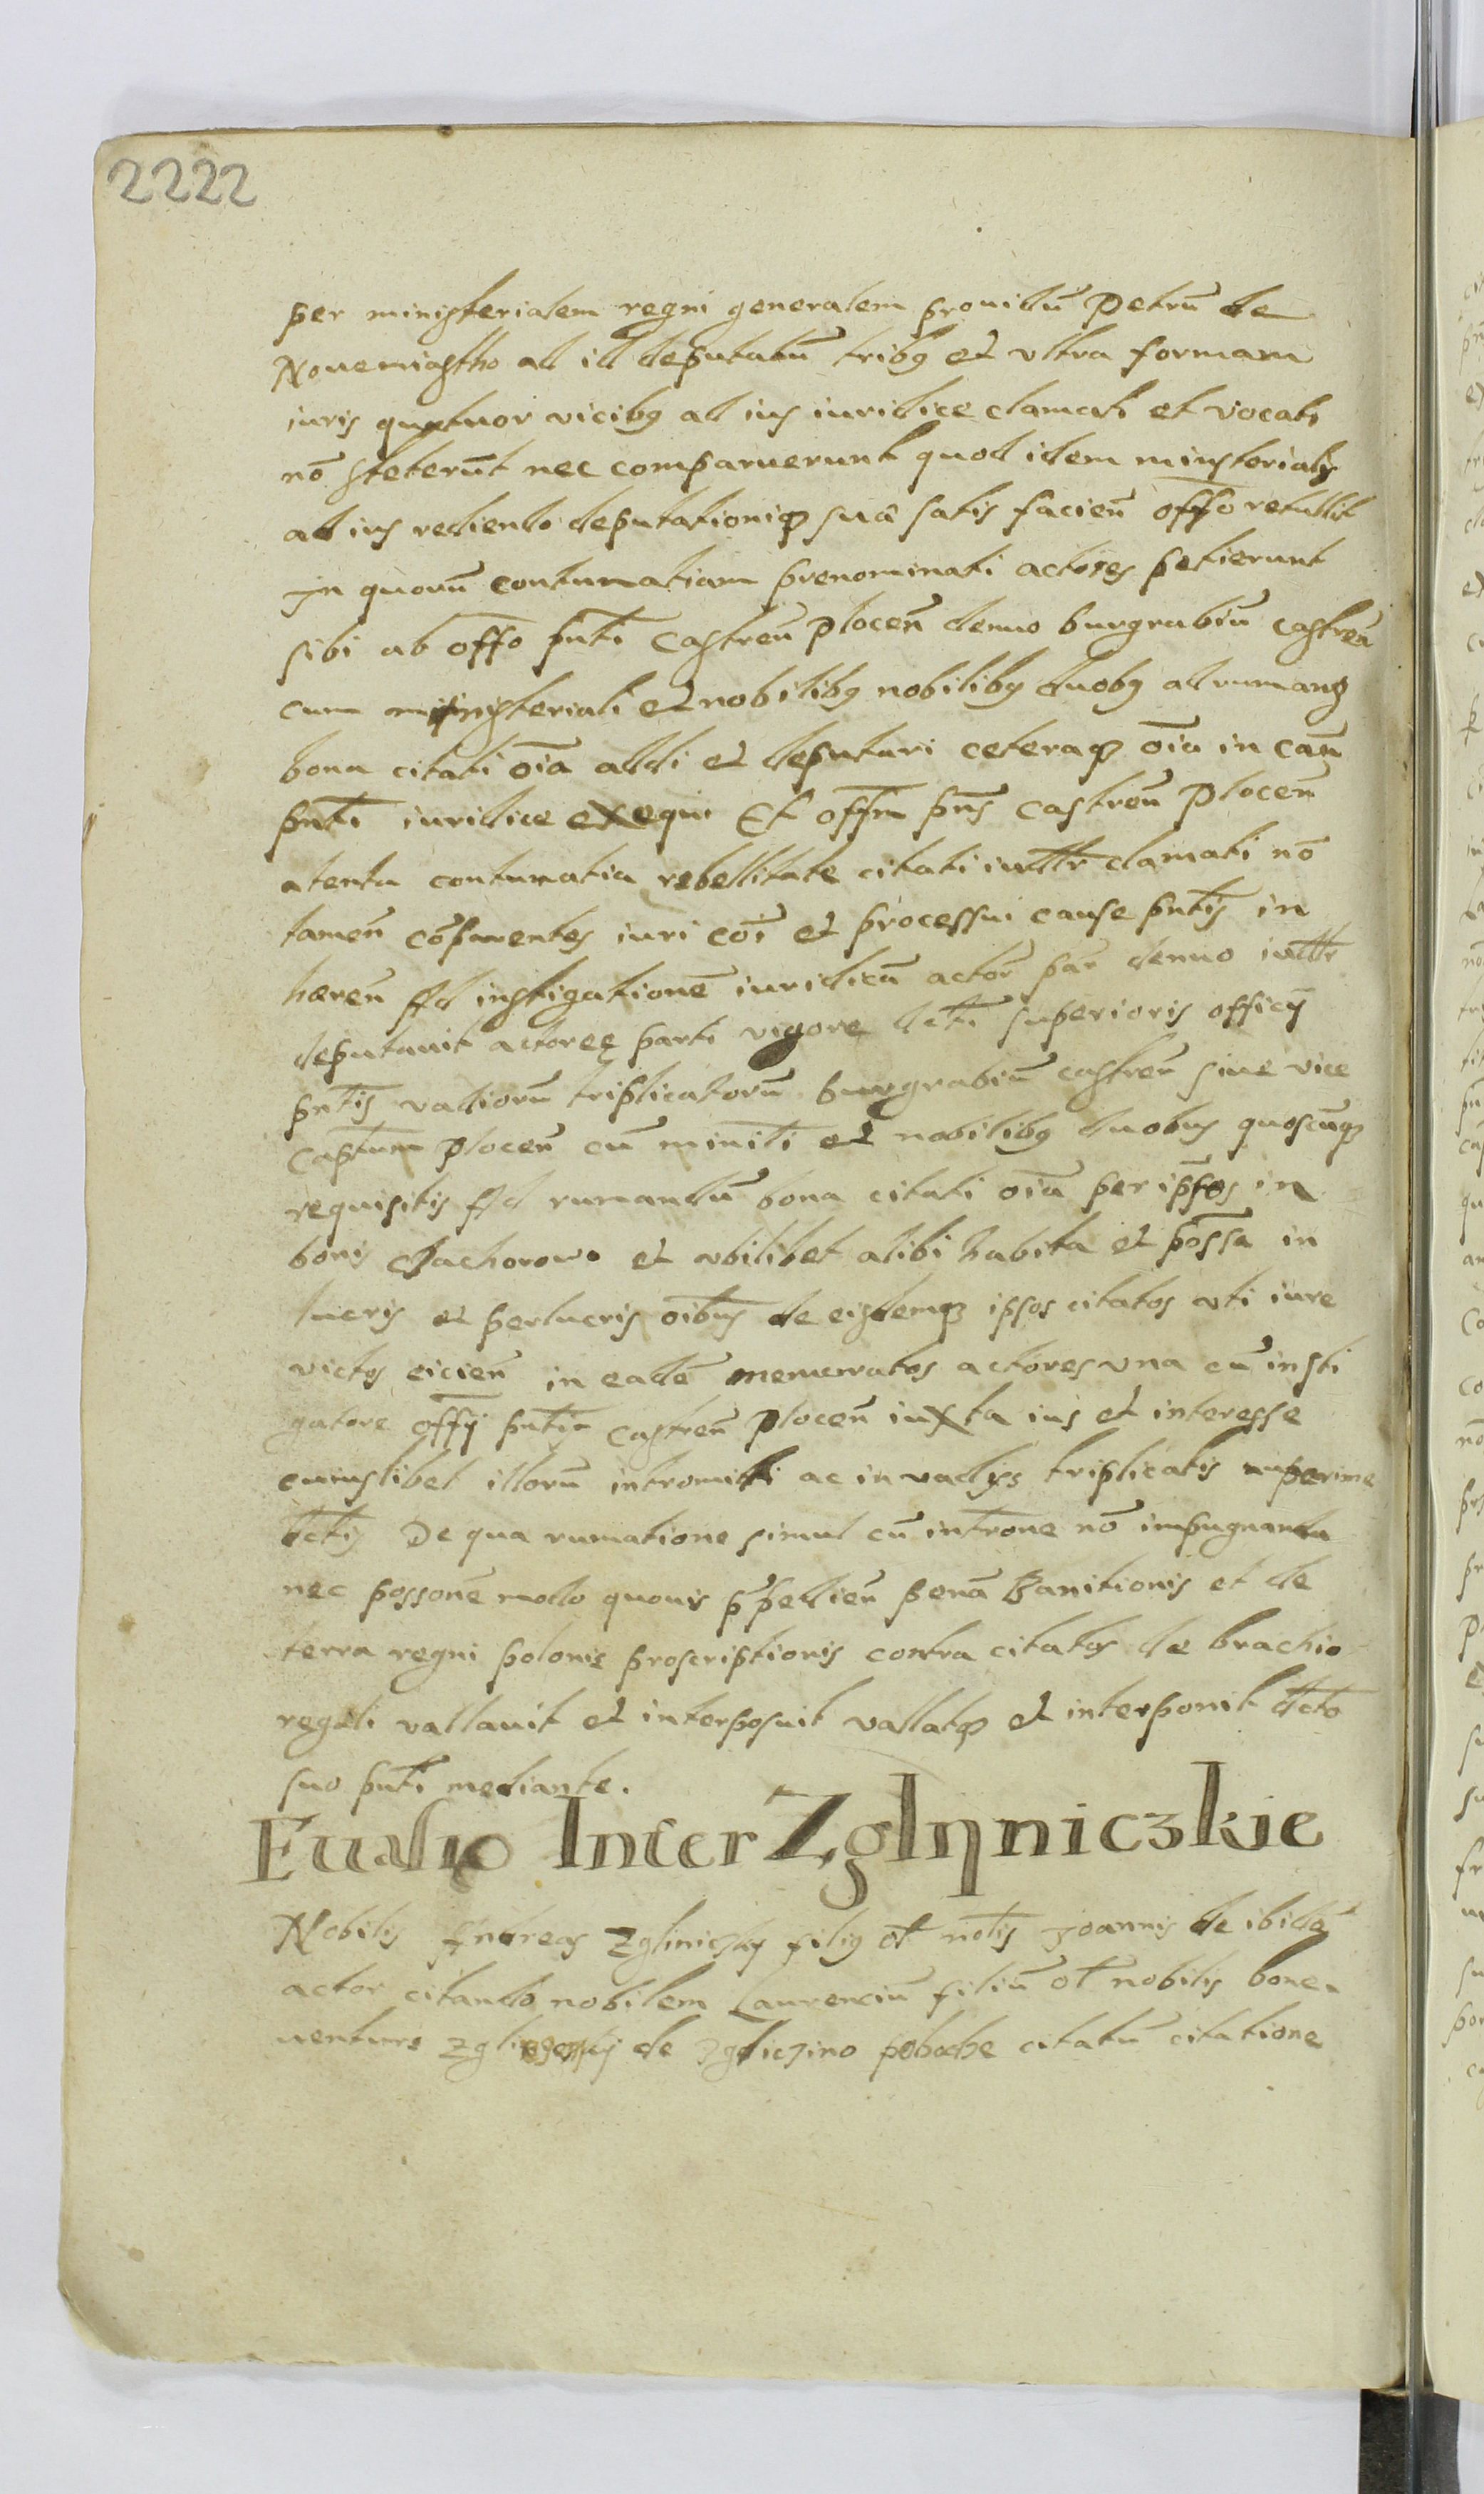 2222
per ministerialem regni generalem prouidū Petrū de
Nouemiastho ad id deputatū tribꝫ et vltra formam
iuris quatuor vicibꝫ ad ius iuridice clamati et vocati
nō steterūt nec comparuerunt quod idem ministerialis
ad ius rediendo deputationiqꝫ suæ satis facień offo retullit
In quorū contumatiam prenominati actores petierunt
sibi ab offo pn̄ti Castreń Plocen̄ denuo burgrabiū castreń
cum ministeriali et nobilibꝫ nobilibꝫ duobꝫ ad rumand
bona citati oīa addi et deputari ceteraqꝫ oīa in cau
pn̄ti iuridice exequi Et offm pn̄s castreń Plocen̄
atenta contumatia rebellitate citati clamati nō
tameń cōparentes iuri cōi et processui cause pn̄tis in
hæreń Ad instigationē iuridicā actor par denuo
deputauit actoreę parti vigore dcti superioris officÿ
pn̄tis vadiorū triplicatorū burgrabiū castreń siue vice
Captum plocen̄ cū minīli et nobilibꝫ duobus quoscūqꝫ
requisitis Ad rumandū bona citati oīa per ipsos in
bonis Chachorowo et vbilibet alibi habita et possa in
lucris et perlucris oibus de eisdemqꝫ ipsos citatos vti iure
victos eicień in eadē memoratos actores vna cū insti
gatore offÿ pn̄tis castreń Plocen̄ iuxta ius et interesse
cuiuslibet illorū intromitti ac in vadÿs triplicatis
dctis De qua rumatione simul cū intrōne nō impugnanda
nec possōne modo quouis p̄pedień penā Banitionis et de
terra regni polonie proscriptionis contra citatos de brachio
regali vallauit et interposuit vallatqꝫ et interponit dcto
suo pn̄ti mediante.
Euasio Inter Zglyniczkie
Nobilis Andreas Zgliniczky filiꝫ ol nobilis Joannis de ibidē
actor citando nobilem Laurenciū filiū ol nobilis bone
uenture de Zgliczino pobodze citatū citatione